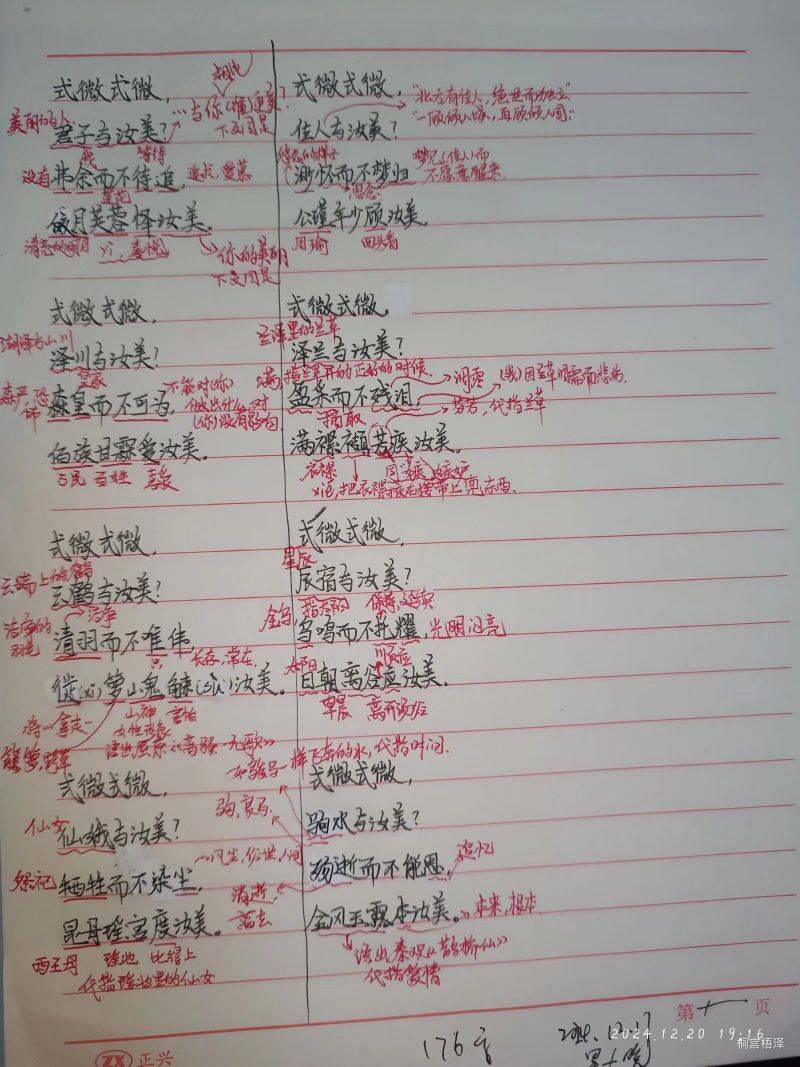 式微式微，
君子与汝美？
弗余而不待追，
皎月芙蓉怿汝美。
美丽的人
相比
…与你(谁)更美？
下文同是
我
等待
没有
追求，爱慕
莲花
清亮的明月
yi，喜悦
你的美丽
下文同是
式微式微，
泽川与汝美？
森皇而不可为，
伯族甘霖爱汝美。
湖泽与山川
皇家
森严，恐怖
不能对(你)
做出什么，对
(你)没有影响
万民 百姓
喜爱
式微式微，
云鹤与汝美？
清羽而不唯伟，
山鬼
汝美。
云端上的鹤
洁净
洁净的
羽毛
只
长存，常在
山神
女性形象
害怕
语出屈原《离骚·九歌》
式微式微，
仙娥与汝美？
牺牲而不染尘，
昆丹瑶宫度汝美。
仙女
祭祀
风尘，俗世，人间
西王母
瑶池
比得上
代指瑶池里的仙女
式微式微，
佳人与汝美？
渺怀而不梦归，
公瑾年少顾汝美。
"北方有佳人，绝世而独立"
"一顾倾人城，再顾倾人国；"
思念
梦见(佳人)而
不愿意醒来
周瑜
回头看
式微式微。
泽兰与汝美？
盈采而不残泪，
满襟襭芳疾汝美。
兰泽里的兰草
满，指兰草开的正好的时候。
凋零
(我)因兰草凋零而悲伤
摘取
芬芳，代指兰草
衣襟
同"嫉"，嫉妒
xié，把衣襟掖在腰带上兜东西.
式微式微，
辰宿与汝美？
乌鸣而不托耀，
日朝离合应汝美。
星辰
金乌，指太阳
光明，闪亮
太阳
顺应
早晨
离开汤谷
式微式微，
驹水与汝美？
殒逝而不能思，
金风玉露本汝美。
如骏马一样飞奔的水，代指时间.
驹，良马.
消逝，
追忆
本来，根本.
语出秦观《鹊桥仙》
代指爱情
第 十 页
176言
2024.12.17
2024.12.20 19:16
桐宫梧泽
ZX 正兴